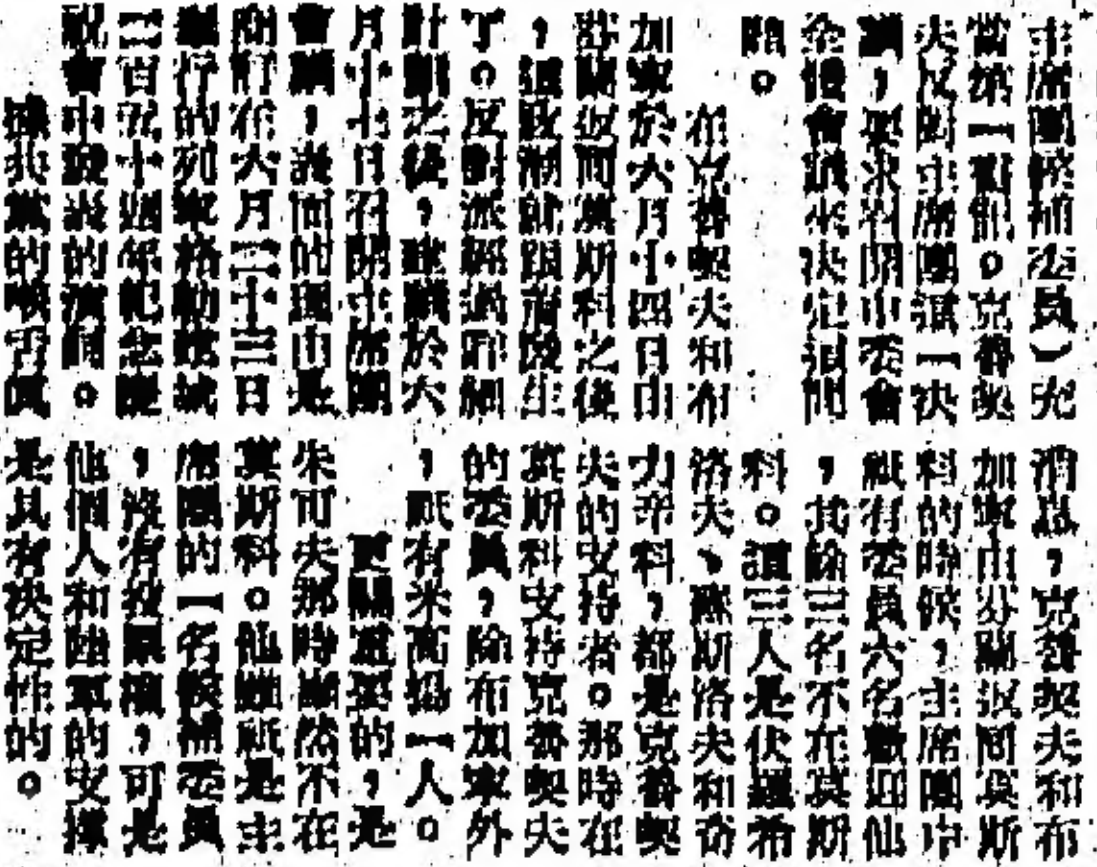 主席團候補委員)充
當第一書記。克魯契
夫反對主席團這一決
議,要求召開中委會
全體會議來決定這問
題。
在克魯契夫和布
加寧於六月十四日由
芬蘭返回莫斯科之後
,這政潮就跟着發生
了。反對派經過詳細
計劃之後,建議於六
月十七日召開主席團
會議,表面的理由是
商討在六月二十三日
舉行的列寧格勒建城
二百五十週年紀念慶
祝會中發表的演詞。
據共黨的喉舌真
消息,克魯契夫和布
加寧由芬蘭返回莫斯
科的時候,主席團中
祇有委員六名歡迎他
,其餘三名不在莫斯
科。這三人是伏羅希
洛夫、蘇斯洛夫和奇
力帝科,都是克魯契
夫的支持者。那時在
莫斯科支持克魯契夫
的委員,除布加寧外
,祇有米高揚一人。
更關重要的,是
朱可夫那時雖然不在
莫斯科。他雖祇是主
席團的一名候補委員
,沒有投票權,可是
他個人和陸軍的支
是具有決定性的。